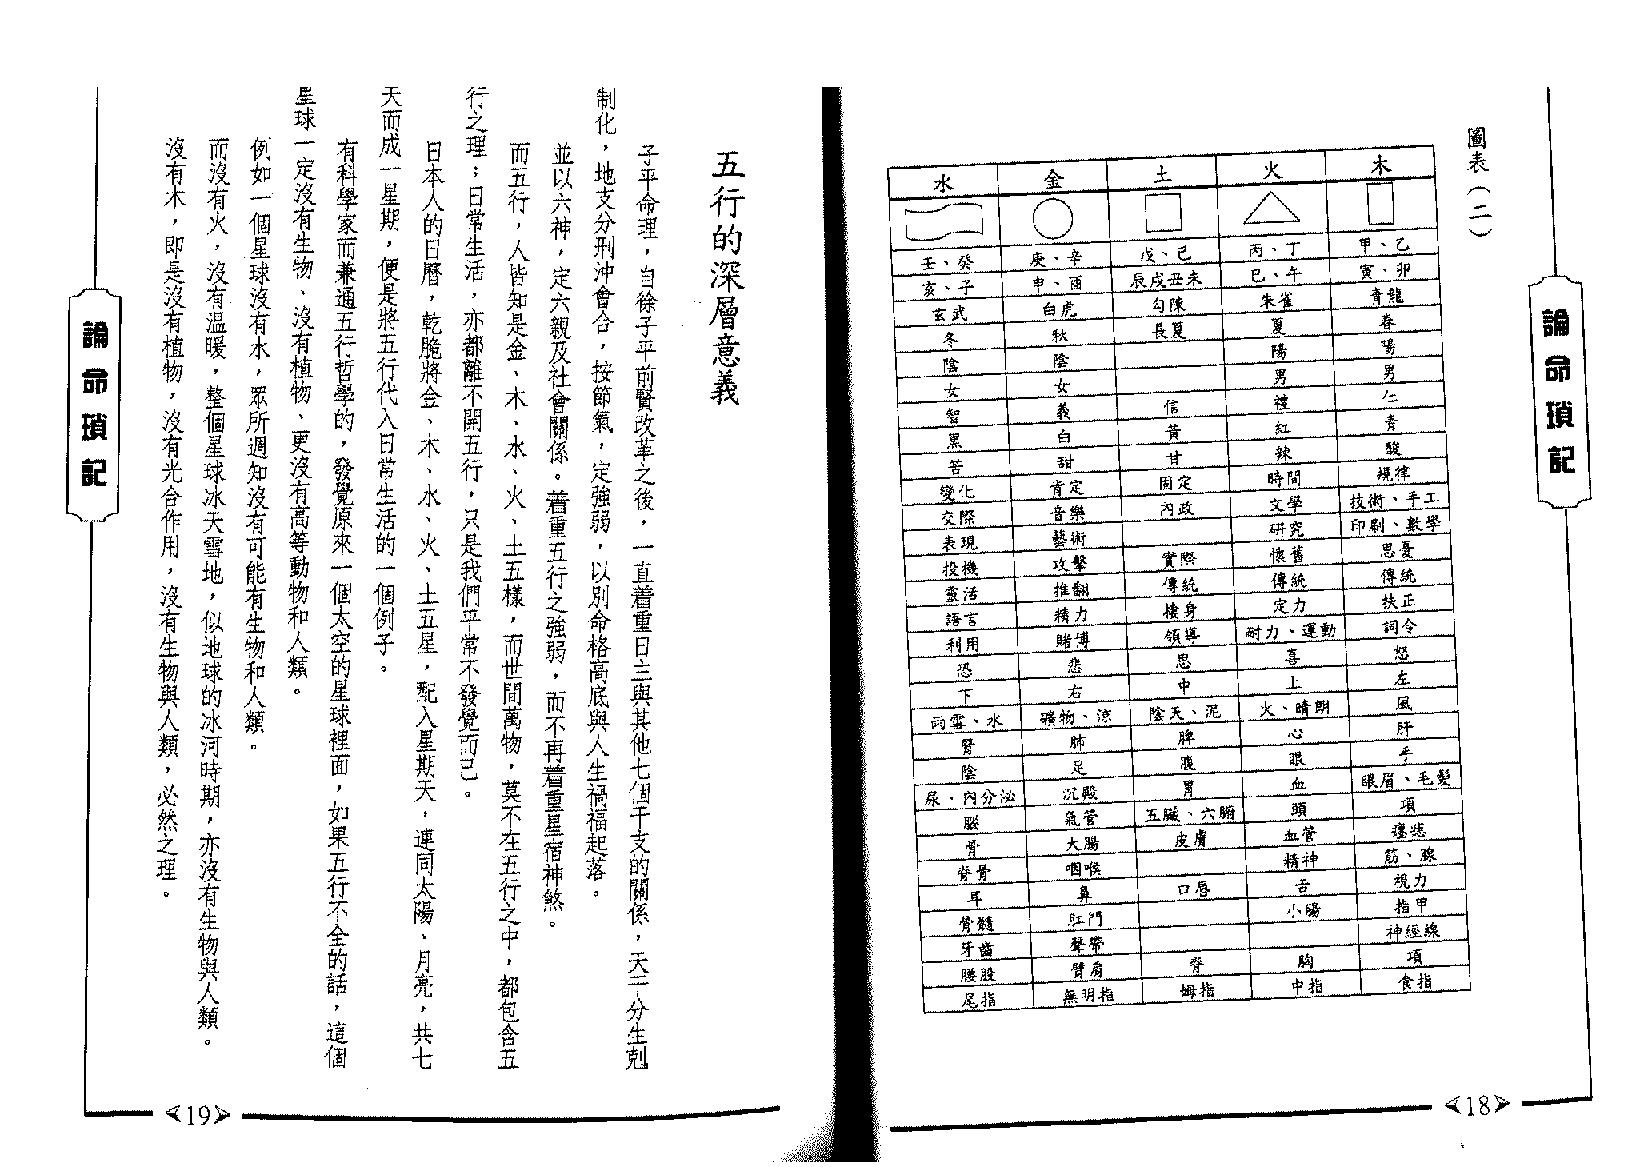 圖表(二)
水 金 土 火 木
壬、癸 庚、辛 戊、己 丙、丁 甲、乙
亥、子 申、酉 辰戌丑未 巳、午 寅、卯
玄武 白虎 勾陳 朱雀 青龍
冬 秋 長夏 夏 春
陰 陰 陽 陽
女 女 男 男
智 義 信 禮 仁
黑 白 黃 紅 青
苦 甜 甘 辣 酸
變化 肯定 固定 時間 規律
交際 音樂 內政 文學 技術、手工
表現 藝術 研究 印刷、數學
投機 攻擊 實際 懷舊 思憂
靈活 推翻 傳統 傳統 傳統
語言 精力 棲身 定力 扶正
利用 賭博 領導 耐力、運動 詞令
恐 悲 思 喜 怒
下 右 中 上 左
雨雪、水 礦物、涼 陰天、泥 火、晴朗 風
腎 肺 脾 心 肝
陰 足 腹 眼 手
尿、內分泌 沉殿 胃 血 眼眉、毛髮
腦 氣管 五臟、六腑 頭 項
骨 大腸 皮膚 血管
脊骨 咽喉 精神 筋、腺
耳 鼻 口唇 舌 視力
骨髓 肛門 小腸 指甲
牙齒 聲帶 神經線
腰股 臂肩 脊 胸 項
尾指 無明指 姆指 中指 食指
論命瑣記
18
五行的深層意義
子平命理，自徐子平前賢改革之後，一直着重日主與其他七個干支的關係，天干分生剋
制化，地支分刑沖會合，按節氣，定強弱，以別命格高底與人生禍福起落。
並以六神，定六親及社會關係。着重五行之強弱，而不再着重星宿神煞。
而五行，人皆知是金、木、水、火、土五樣，而世間萬物，莫不在五行之中，都包含五
行之理；日常生活，亦都離不開五行，只是我們平常不發覺而已。
日本人的日曆，乾脆將金、木、水、火、土五星，配入星期天，連同太陽、月亮，共七
天而成一星期，便是將五行代入日常生活的一個例子。
有科學家而兼通五行哲學的，發覺原來一個太空的星球裡面，如果五行不全的話，這個
星球一定沒有生物、沒有植物、更沒有高等動物和人類。
例如一個星球沒有水，眾所週知沒有可能有生物和人類。
而沒有火，沒有溫暖，整個星球冰天雪地，似地球的冰河時期，亦沒有生物與人類。
沒有木，即是沒有植物，沒有光合作用，沒有生物與人類，必然之理。
論命瑣記
19